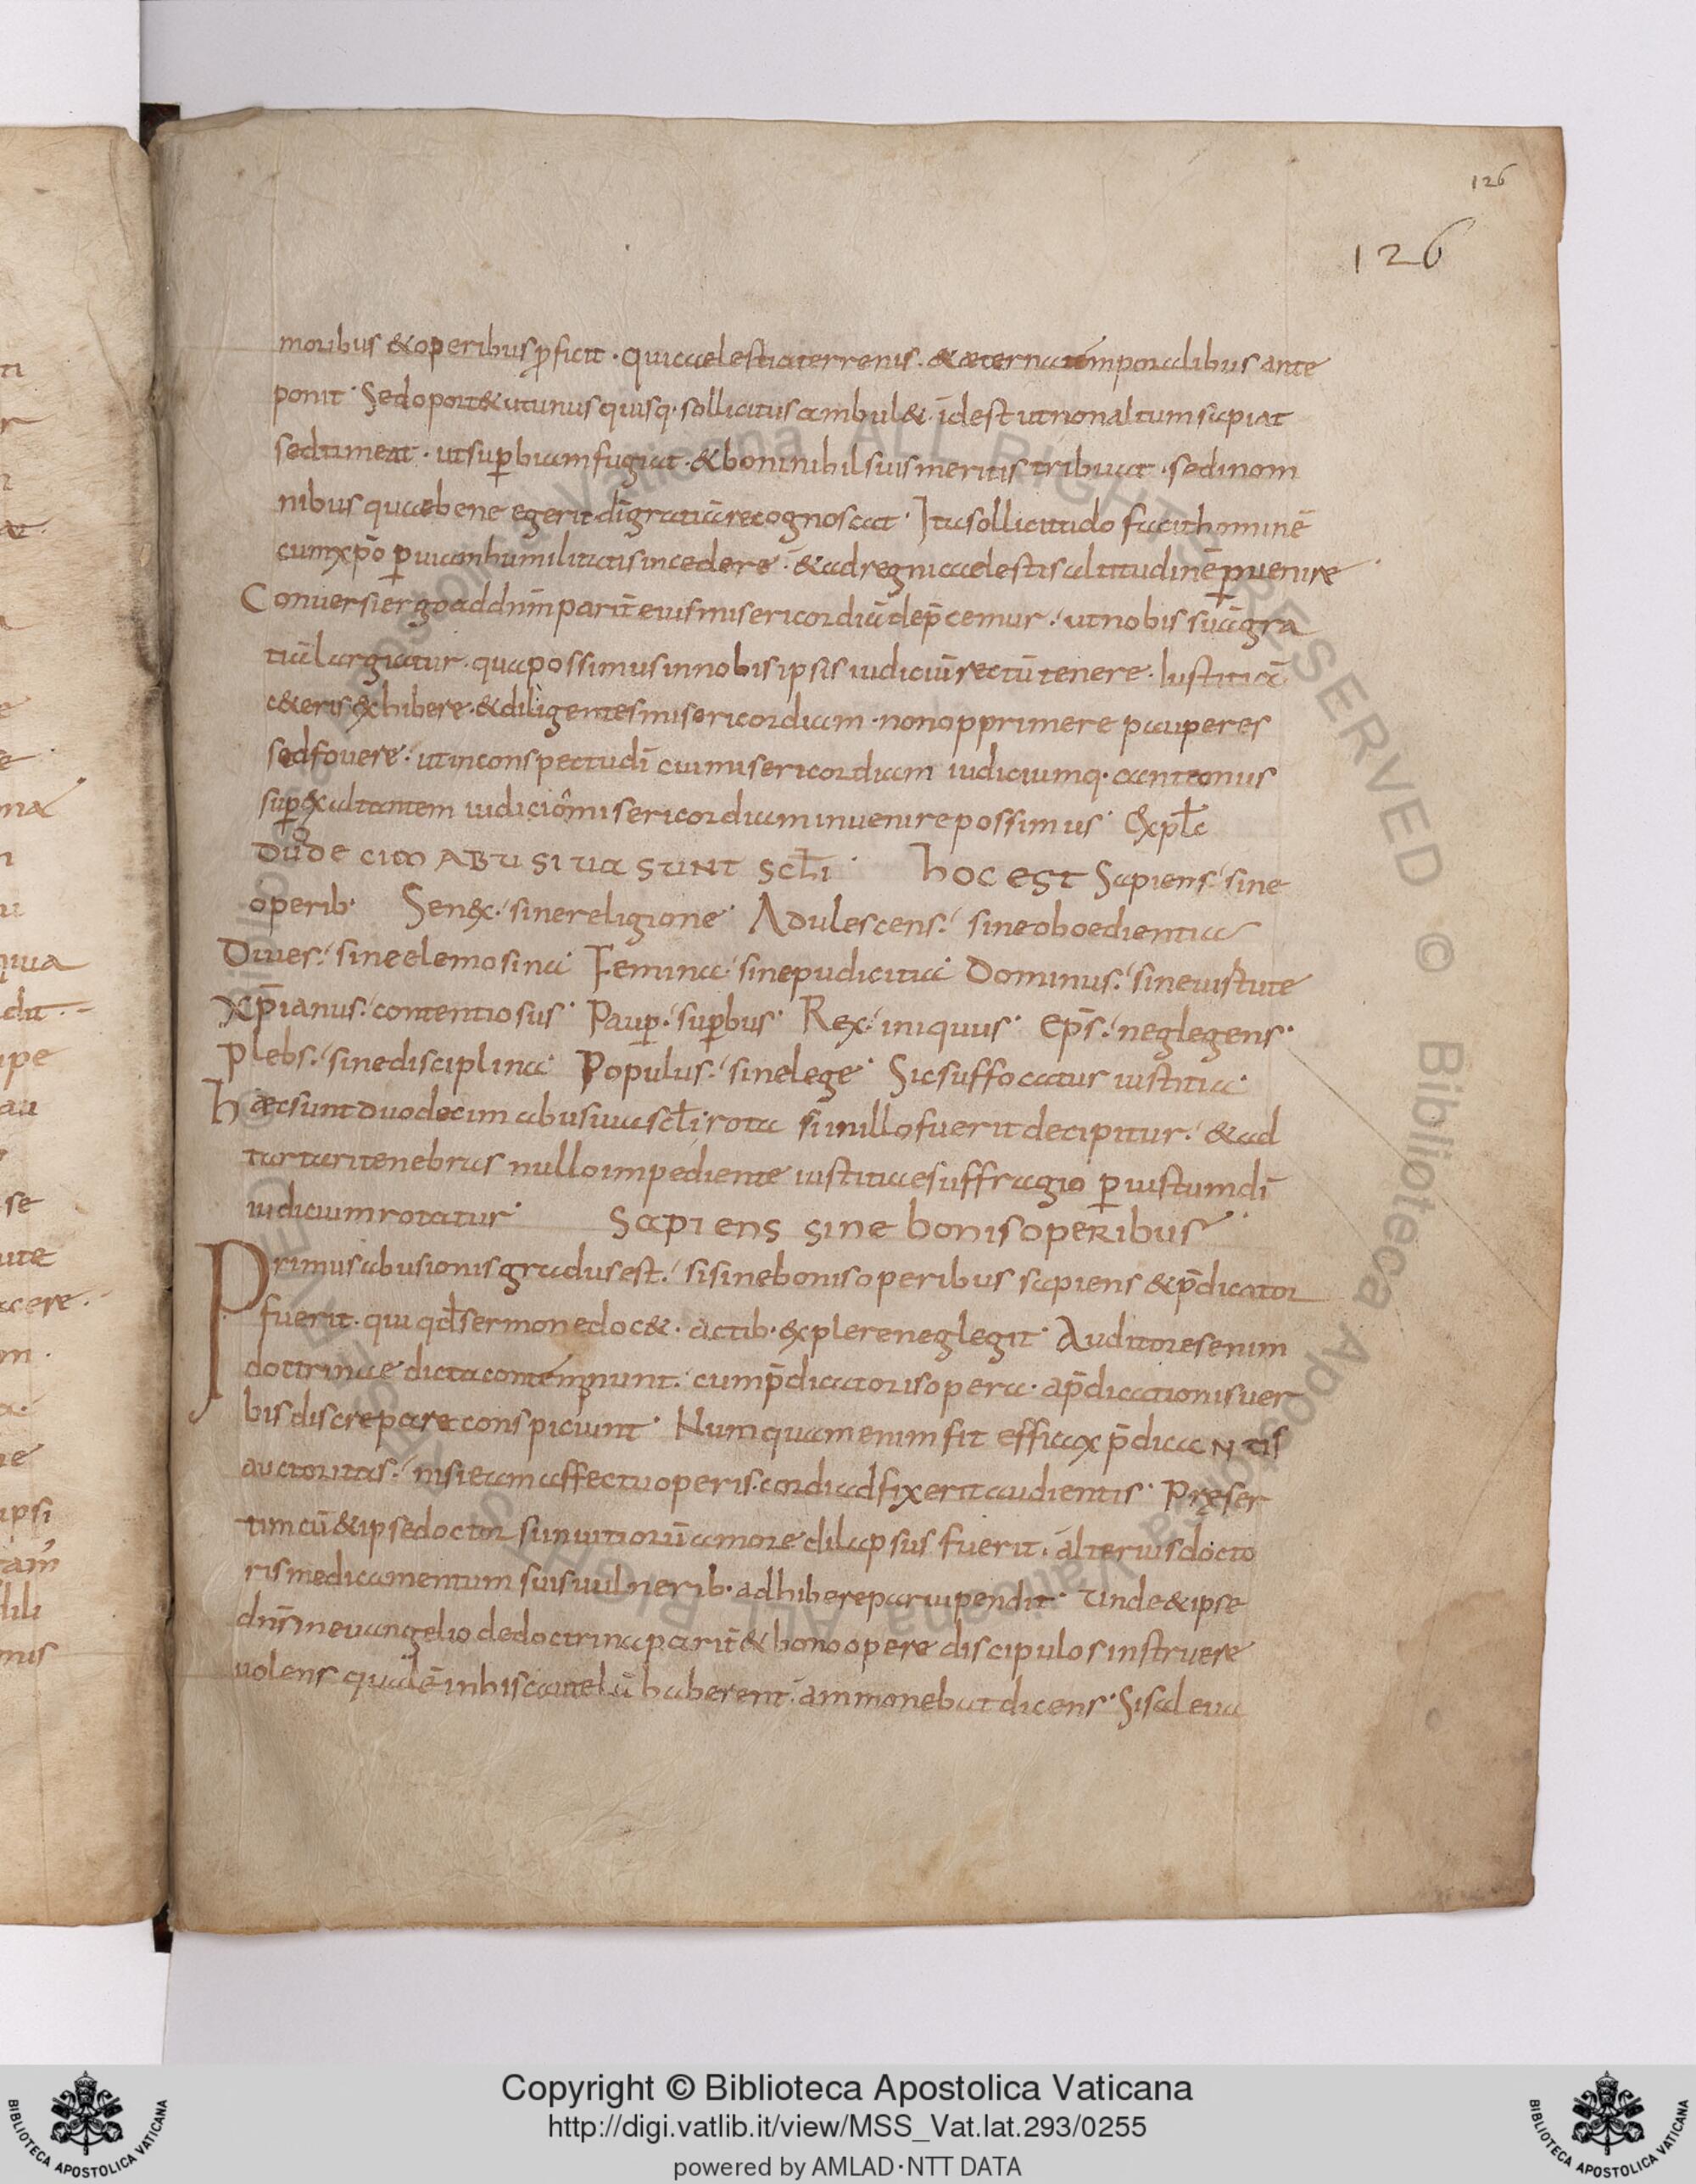 126
126
moribus & operibus ꝓficit · qui caelestia terrenis · & aeterna temporalibus ante
ponit · Sed oport& ut unusquisq· sollicitus ambul& · idest ut non altum sapiat
sed timeat · ut suꝑbiam fugiat · & boni nihil suis meritis tribuat · sed in om
nibus quae bene egerit dī gratiā recognoscat · Ita sollicitudo facit hominē
cum xp̄o ꝑ uiam humilitatis incedere · & ad regni caelestis altitudinē ꝑuenire
Conuersi ergo ad dn̄m parit̄ eius misericordiā dep̄cemur · ut nobis suā gra
tiā largiatur · qua possimus in nobis ipsis iudiciū rectū tenere · Iustitiā
c&eris exhibere · & diligentes misericordiam · non opprimere pauperes
sed fouere · ut in conspectu dī cui misericordiam iudiciumq· canteomus
suꝑexaltantem iudicio misericordiam inuenire possimus · Expłc
Duodecim abusiua sunt scłi · hoc est Sapiens sine
operib· Senex · sine religione · Adulescens · sine oboedientia
Diues · sine elemosina · Femina · sine pudicitia · Dominus · sine uirtute
xp̄ianus · contentiosus · Pauꝑ · suꝑbus · Rex · iniquus · Ep̄s · neglegens ·
Plebs · sine disciplina · Populus · sine lege · Sic suffocatur iustitia ·
haec sunt duodecim abusiua scłi · rota si in illo fuerit decipitur · & ad
tartari tenebras nullo impediente iustitiae suffragio ꝑ iustum dī
iudicium rotatur · Sapiens sine bonis operibus ·
Primus abusionis gradus est · si sine bonis operibus sapiens & p̄dicator
fuerit · qui qđ sermone doc& · actib· explere neglegit · Auditores enim
doctrinae dicta contempnunt · cum p̄dicatoris opera · a p̄dicationis uer
bis discrepare conspiciunt · Numquam enim fit efficax p̄dicantis
auctoritas · nisi eam affectu operis · cordi adfixerit audientis · Praeser
tim cū & ipse doctor si in uitiorū amore dilapsus fuerit · alterius docto
ris medicamentum suis uulnerib· adhibere paruipendit · Unde & ipse
dn̄s in euangelio de doctrina parit̄ & bono opere discipulos instruere
uolens qualē in his cautelā haberent · ammonebat dicens · Si sal eua
Copyright © Biblioteca Apostolica Vaticana
http://digi.vatlib.it/view/MSS_Vat.lat.293/0255
powered by AMLAD·NTT DATA
BIBLIOTECA APOSTOLICA VATICANA
BIBLIOTECA APOSTOLICA VATICANA